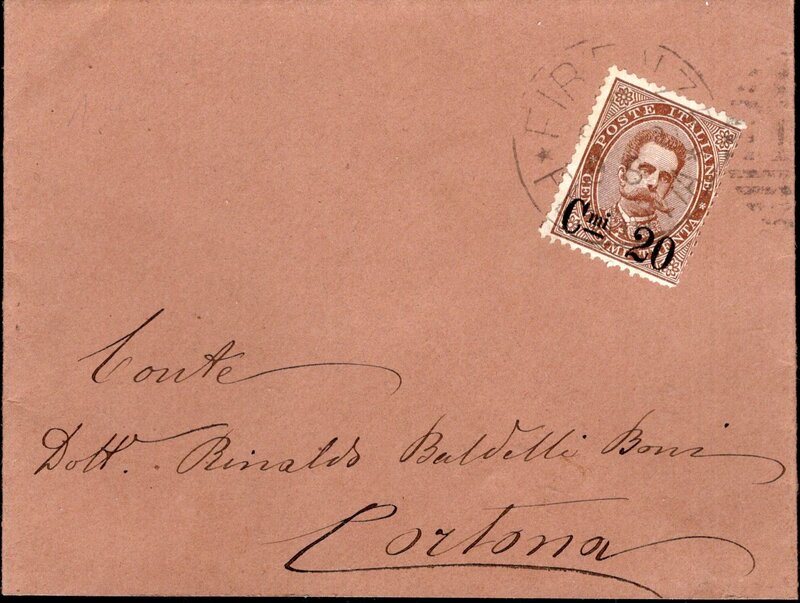 FIRENZE
POSTE ITALIANE
Cmi 20
Conte
Dott. Rinaldo Baldelli Boni
Cortona